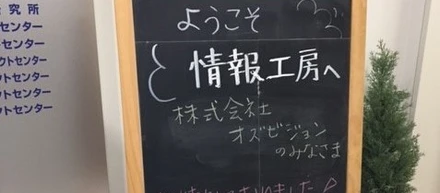 究所
センター
センター
クトセンター
クトセンター
クトセンター
ットセンター
ようこそ
情報工房へ
株式会社
オズビジョン
のみなさま